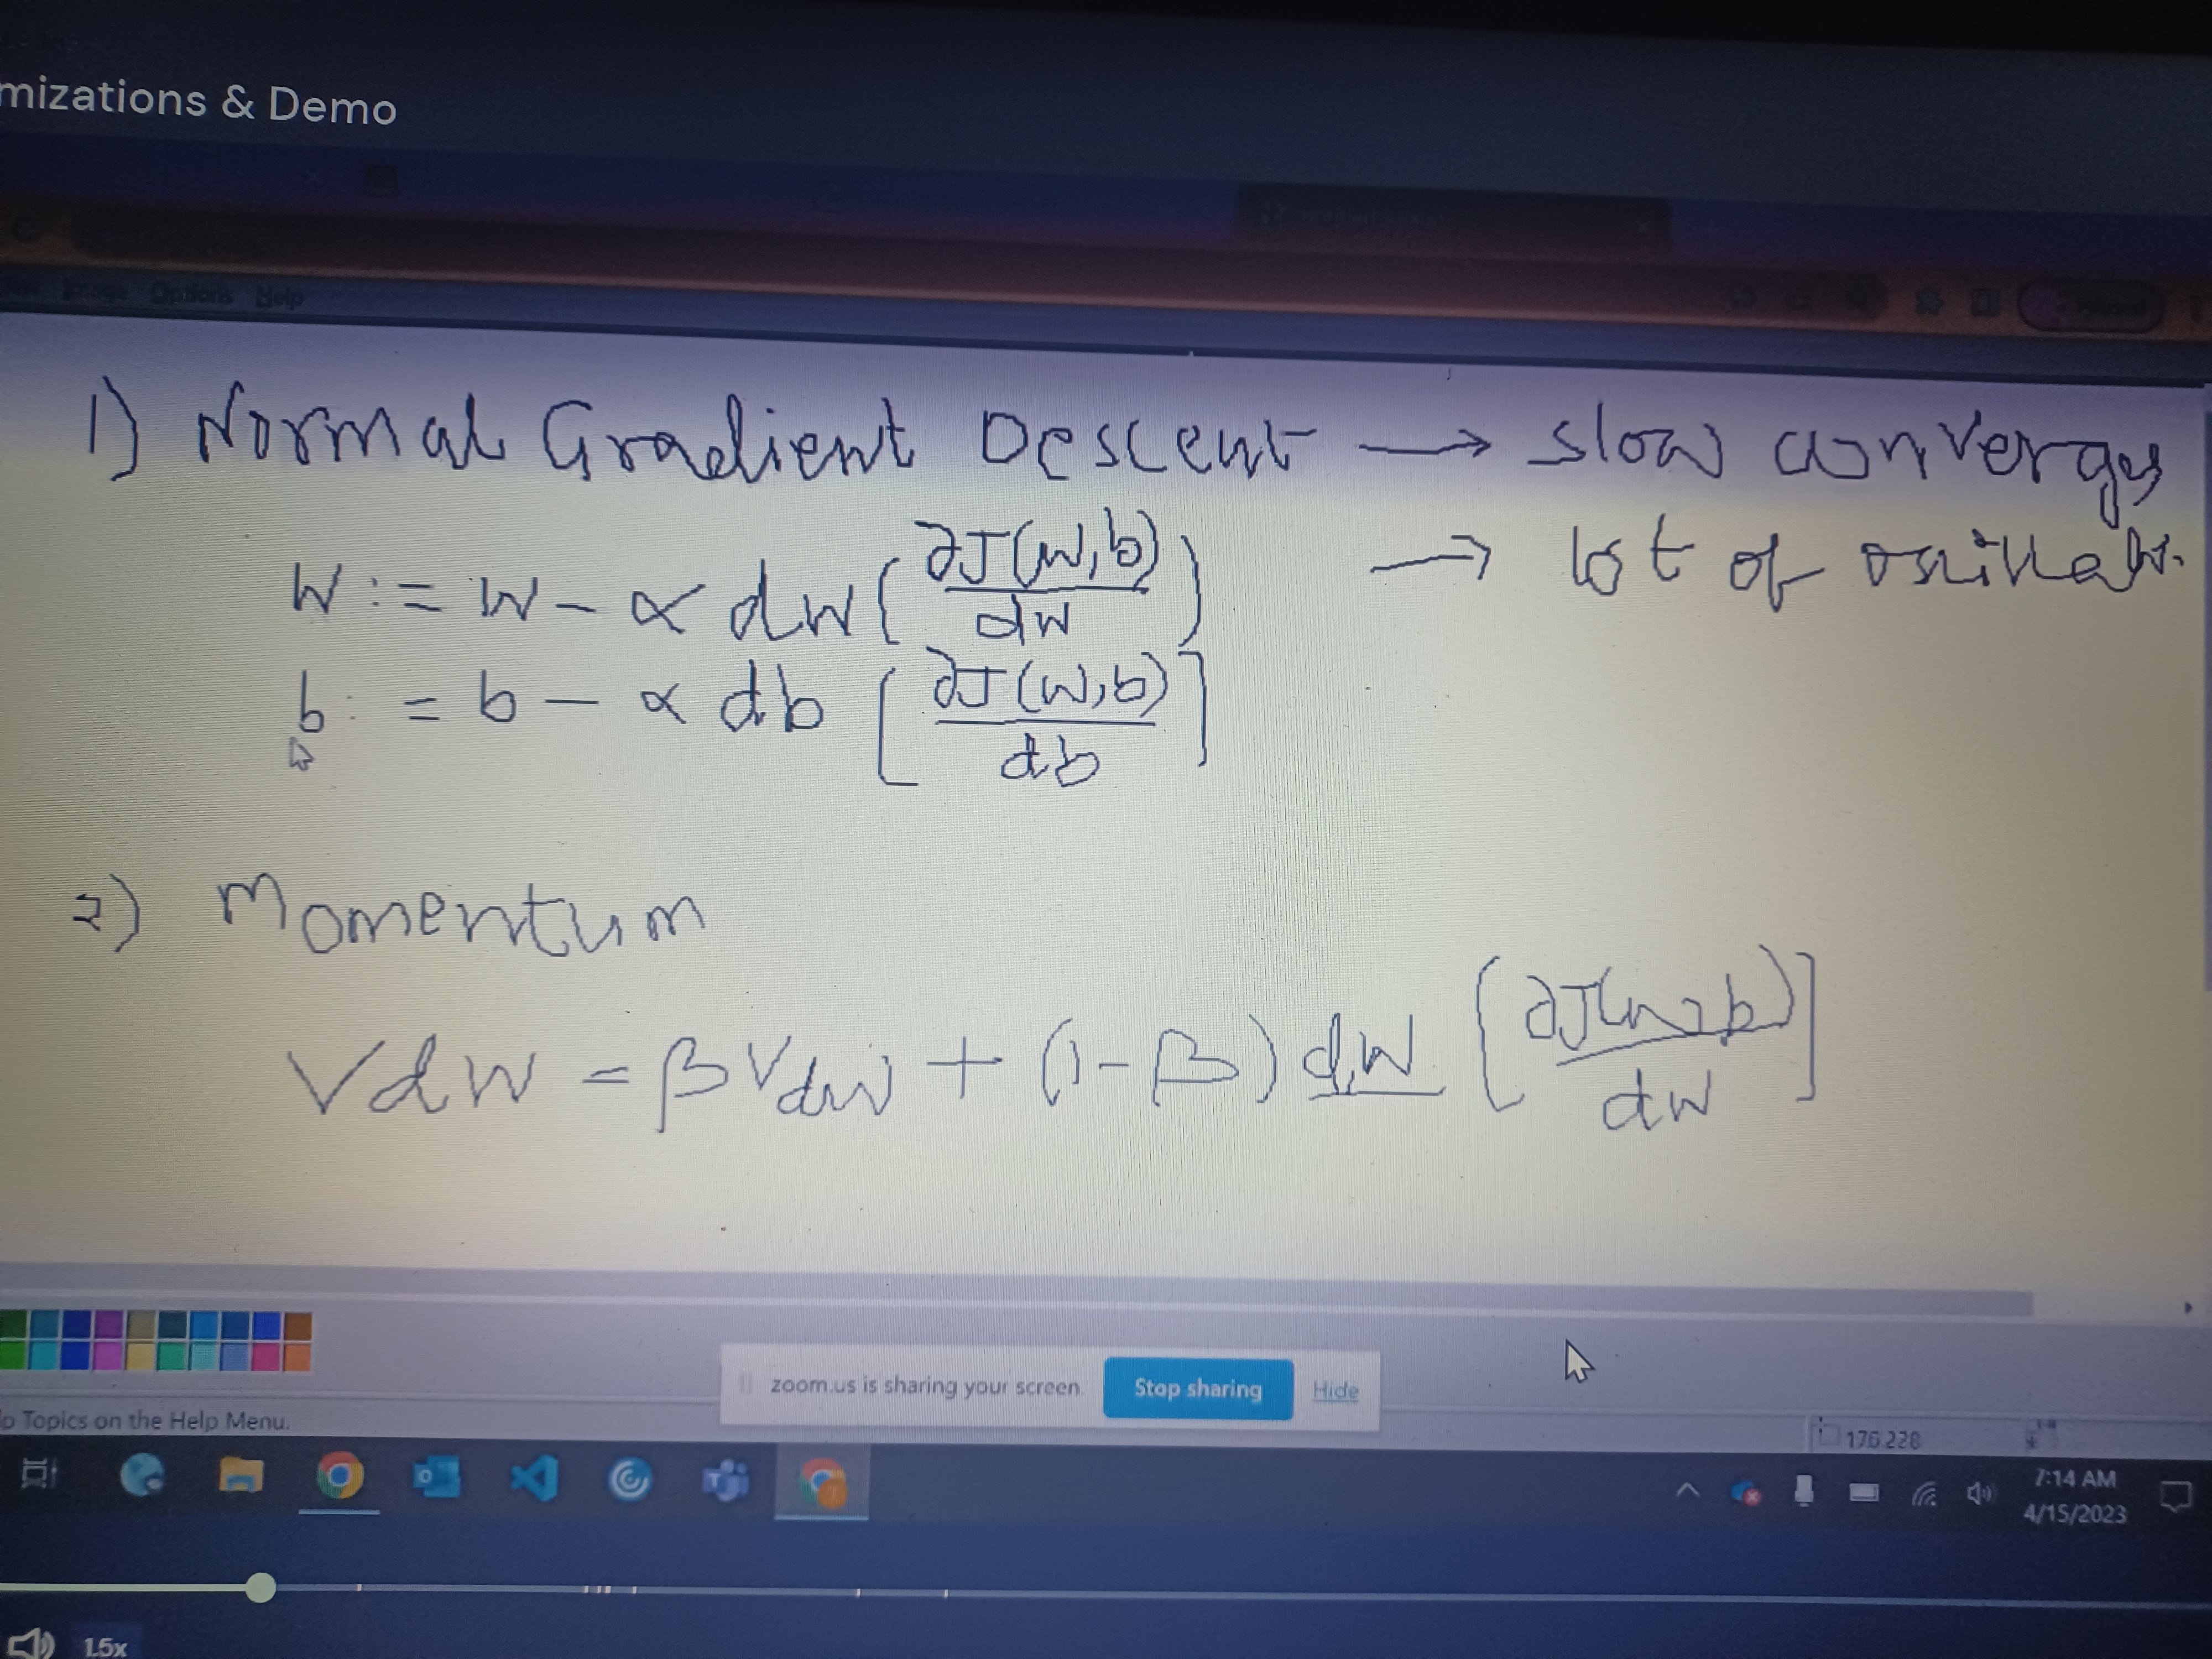 mizations & Demo
Image Options Help
1) Normal Gradient Descent → slow
→ lot of
W := W - α dW ( ∂J(W,b) / dW )
b := b - α db [ ∂J(W,b) / db ]
2) Momentum
VdW = β Vdw + (1-β) dW [ ∂J(w,b) / dW ]
zoom.us is sharing your screen. Stop sharing Hide
p Topics on the Help Menu.
176,228
7:14 AM
4/15/2023
1.5x